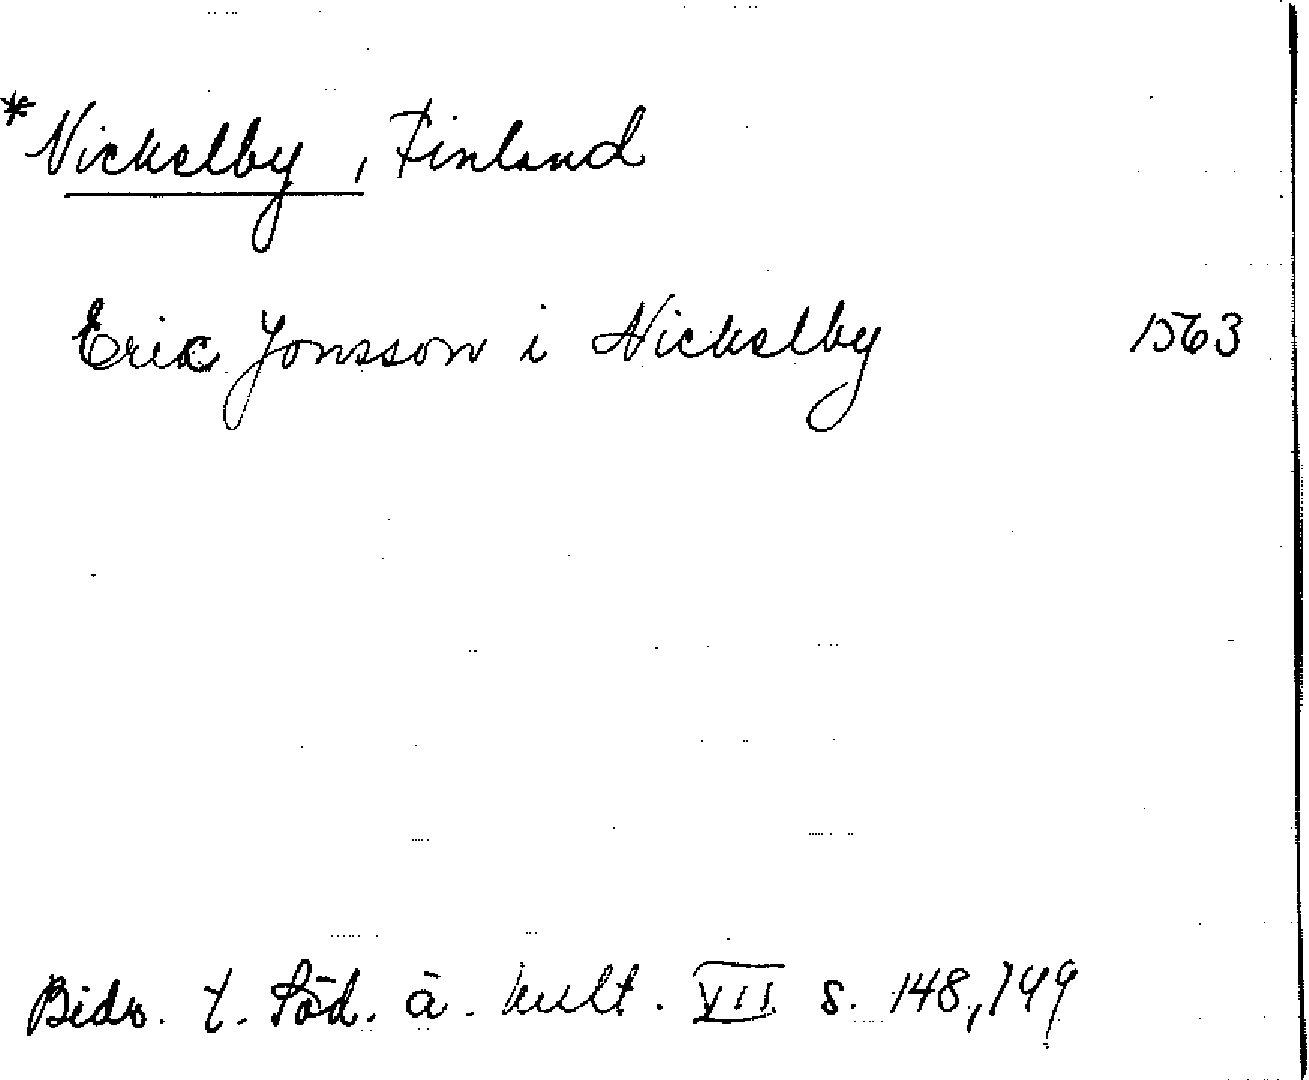 *Nickelby, Finland
Eric Jonsson i Nickelby 1563
Bidr. t. Söd. ä. kult. VII s. 148, 149